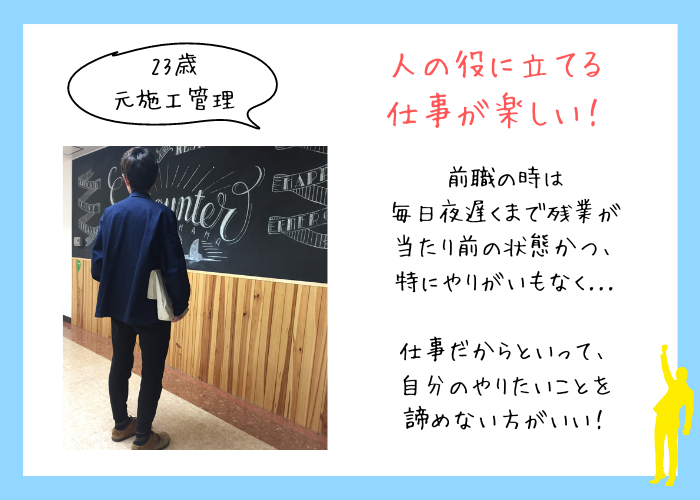 23歳
元施工管理
人の役に立てる
仕事が楽しい!
前職の時は
毎日夜遅くまで残業が
当たり前の状態かつ、
特にやりがいもなく...
仕事だからといって、
自分のやりたいことを
諦めない方がいい!